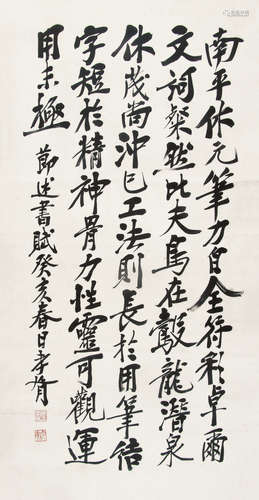 南平休元筆力自全符彩卓爾
文詞粲然比夫鳥在鷇龍潛泉
休茂尚沖已工法則長於用筆結
字短於精神骨力性靈可觀運
用未極
節述書賦癸亥春日孝胥